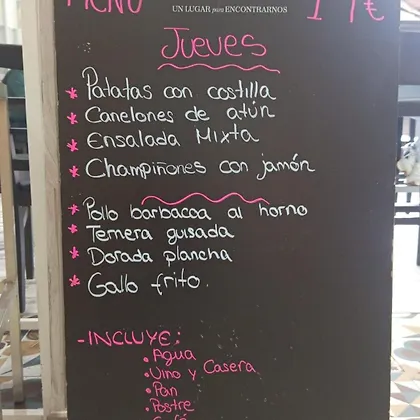 MENÚ
UN LUGAR para ENCONTRARNOS
Jueves
* Patatas con costilla
* Canelones de atún
* Ensalada Mixta
* Champiñones con jamón
* Pollo barbacoa al horno
* Ternera guisada
* Dorada plancha
* Gallo frito.
- INCLUYE:
• Agua
• Vino y Casera
• Pan
• Postre